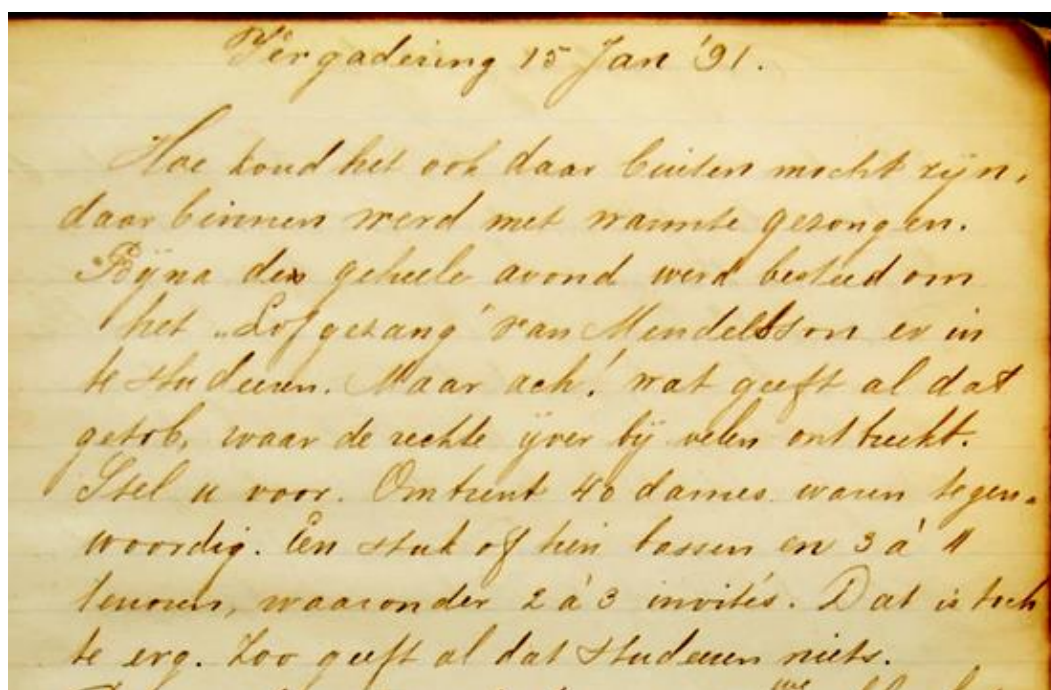 Vergadering 15 Jan '91.
Hoe koud het ook daar buiten mocht zijn,
daar binnen werd met warmte gezongen.
Bijna den geheele avond werd besteed om
het „Lofgezang" van Mendelsson er in
te studeeren. Maar ach! wat geeft al dat
getob, waar de rechte ijver bij velen ontbreekt.
Stel u voor. Omtrent 40 dames waren tegen-
woordig. Een stuk of tien bassen en 3 à 4
tenoren, waaronder 2 à 3 invités. Dat is toch
te erg. Zoo geeft al dat studeeren niets.